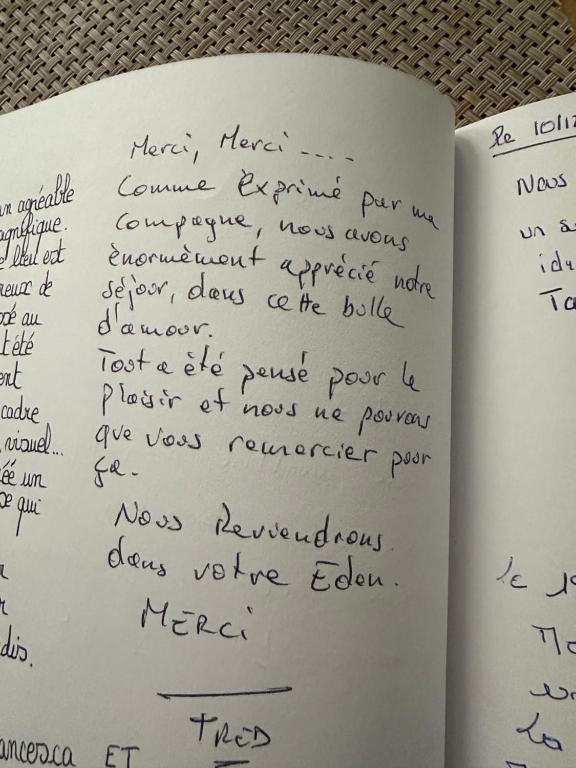 un agréable
agnifique.
lieu est
reux de
osé au
t été
ent
cadre
visuel...
éé un
ce qui
dis.
ancesca ET
Merci, Merci ....
Comme Èxprimé par ma
compagne, nous avons
ènormèment apprécié notre
séjour, dans cette bulle
d'amour.
Tout a èté pensé pour le
plaisir et nous ne pouvons
que vous remercier pour
ça.
Nous Reviendrons.
dans votre Eden.
MERCi
FRED
Le 10/12
Nous
un s
idy
Ta
le 1